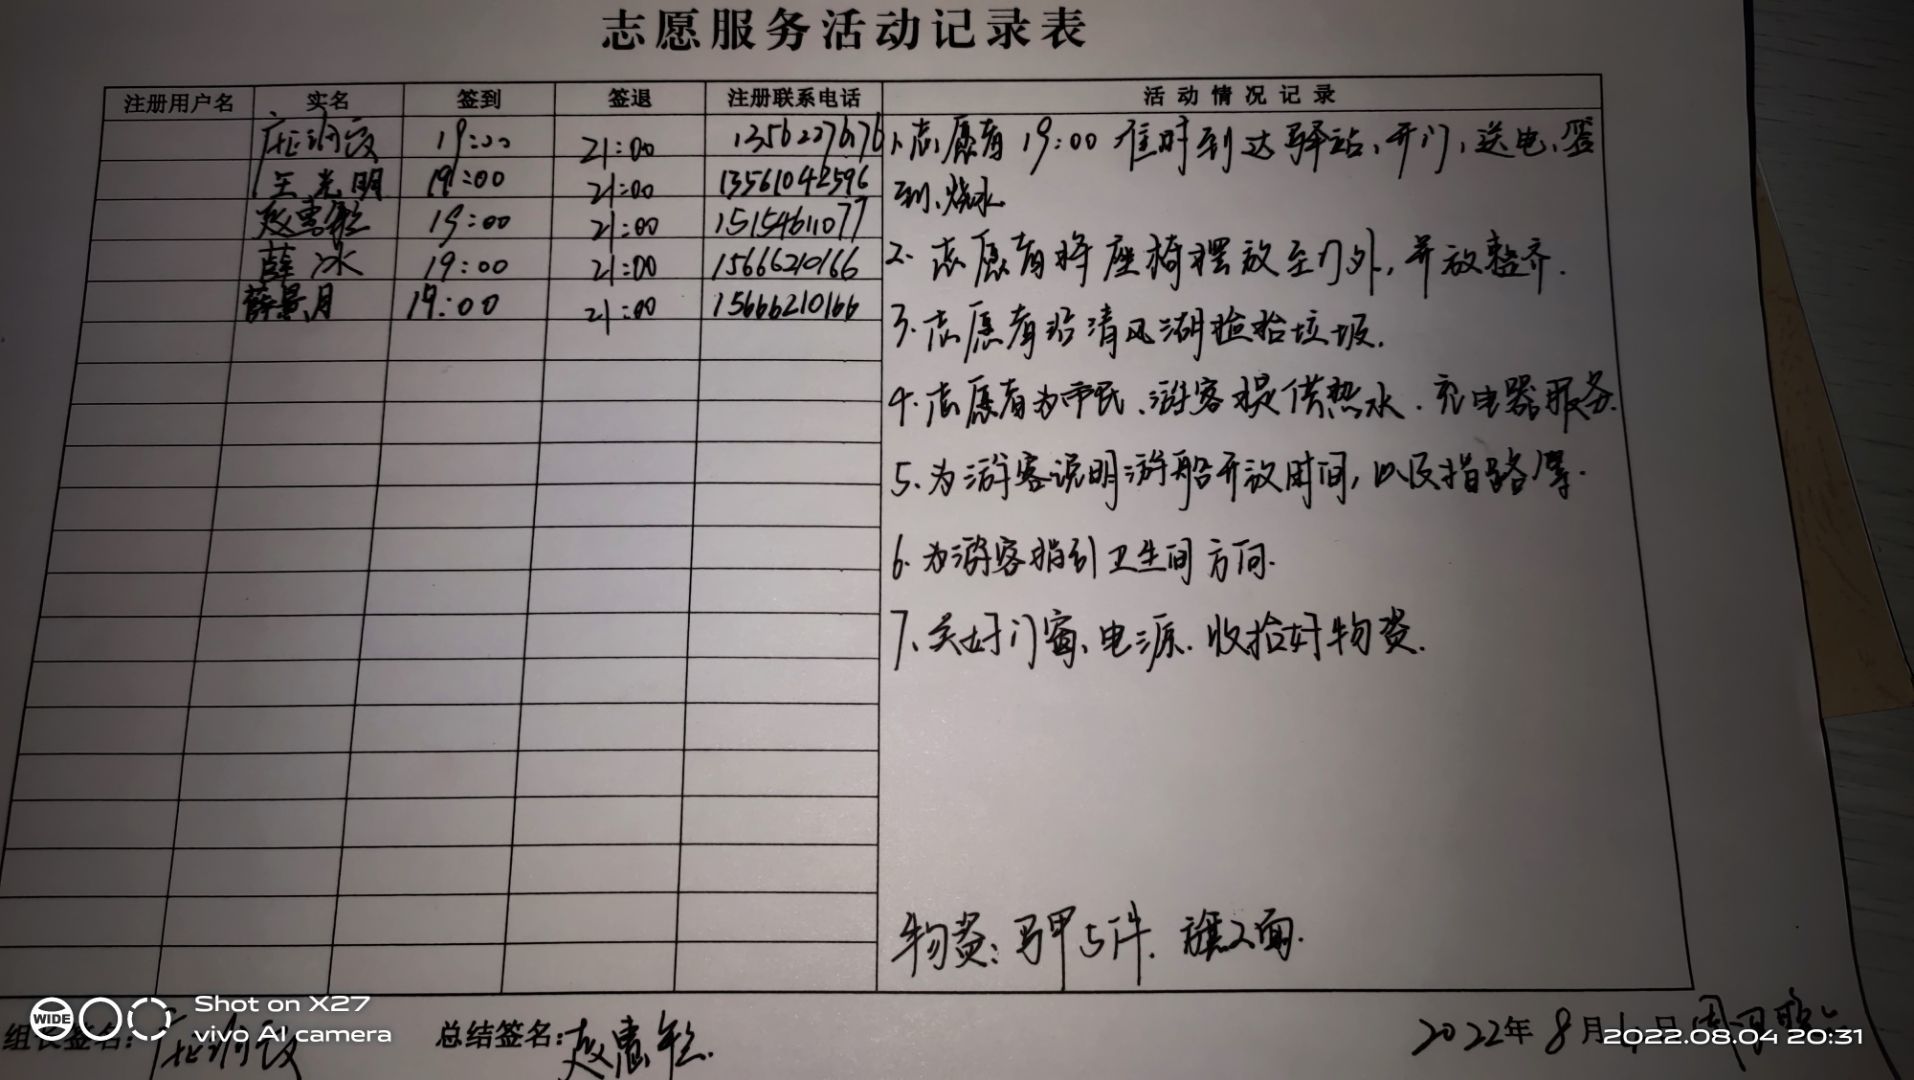 志愿服务活动记录表
注册用户名 实名 签到 签退 注册联系电话 活动情况记录
19:00 21:00 13562276176
王光明 19:00 21:00 13561042596
赵惠 19:00 21:00 15154611077
薛冰 19:00 21:00 15666210166
薛景月 19:00 21:00 15666210166
1、志愿者19:00准时到达驿站、开门,送电、签
到、烧水
2. 志愿者将座椅摆放至门外,并放整齐.
3. 志愿者沿清风湖捡拾垃圾.
4. 志愿者为市民、游客提供热水.充电器服务.
5、为游客说明游船开放时间,以及指路等.
6. 为游客指引卫生间方向.
7、关好门窗、电源.收拾好物资.
物资:马甲5件. 旗2面.
组长签名:
总结签名:赵惠
2022年8月4日
WIDE
Shot on X27
vivo AI camera
2022.08.04 20:31